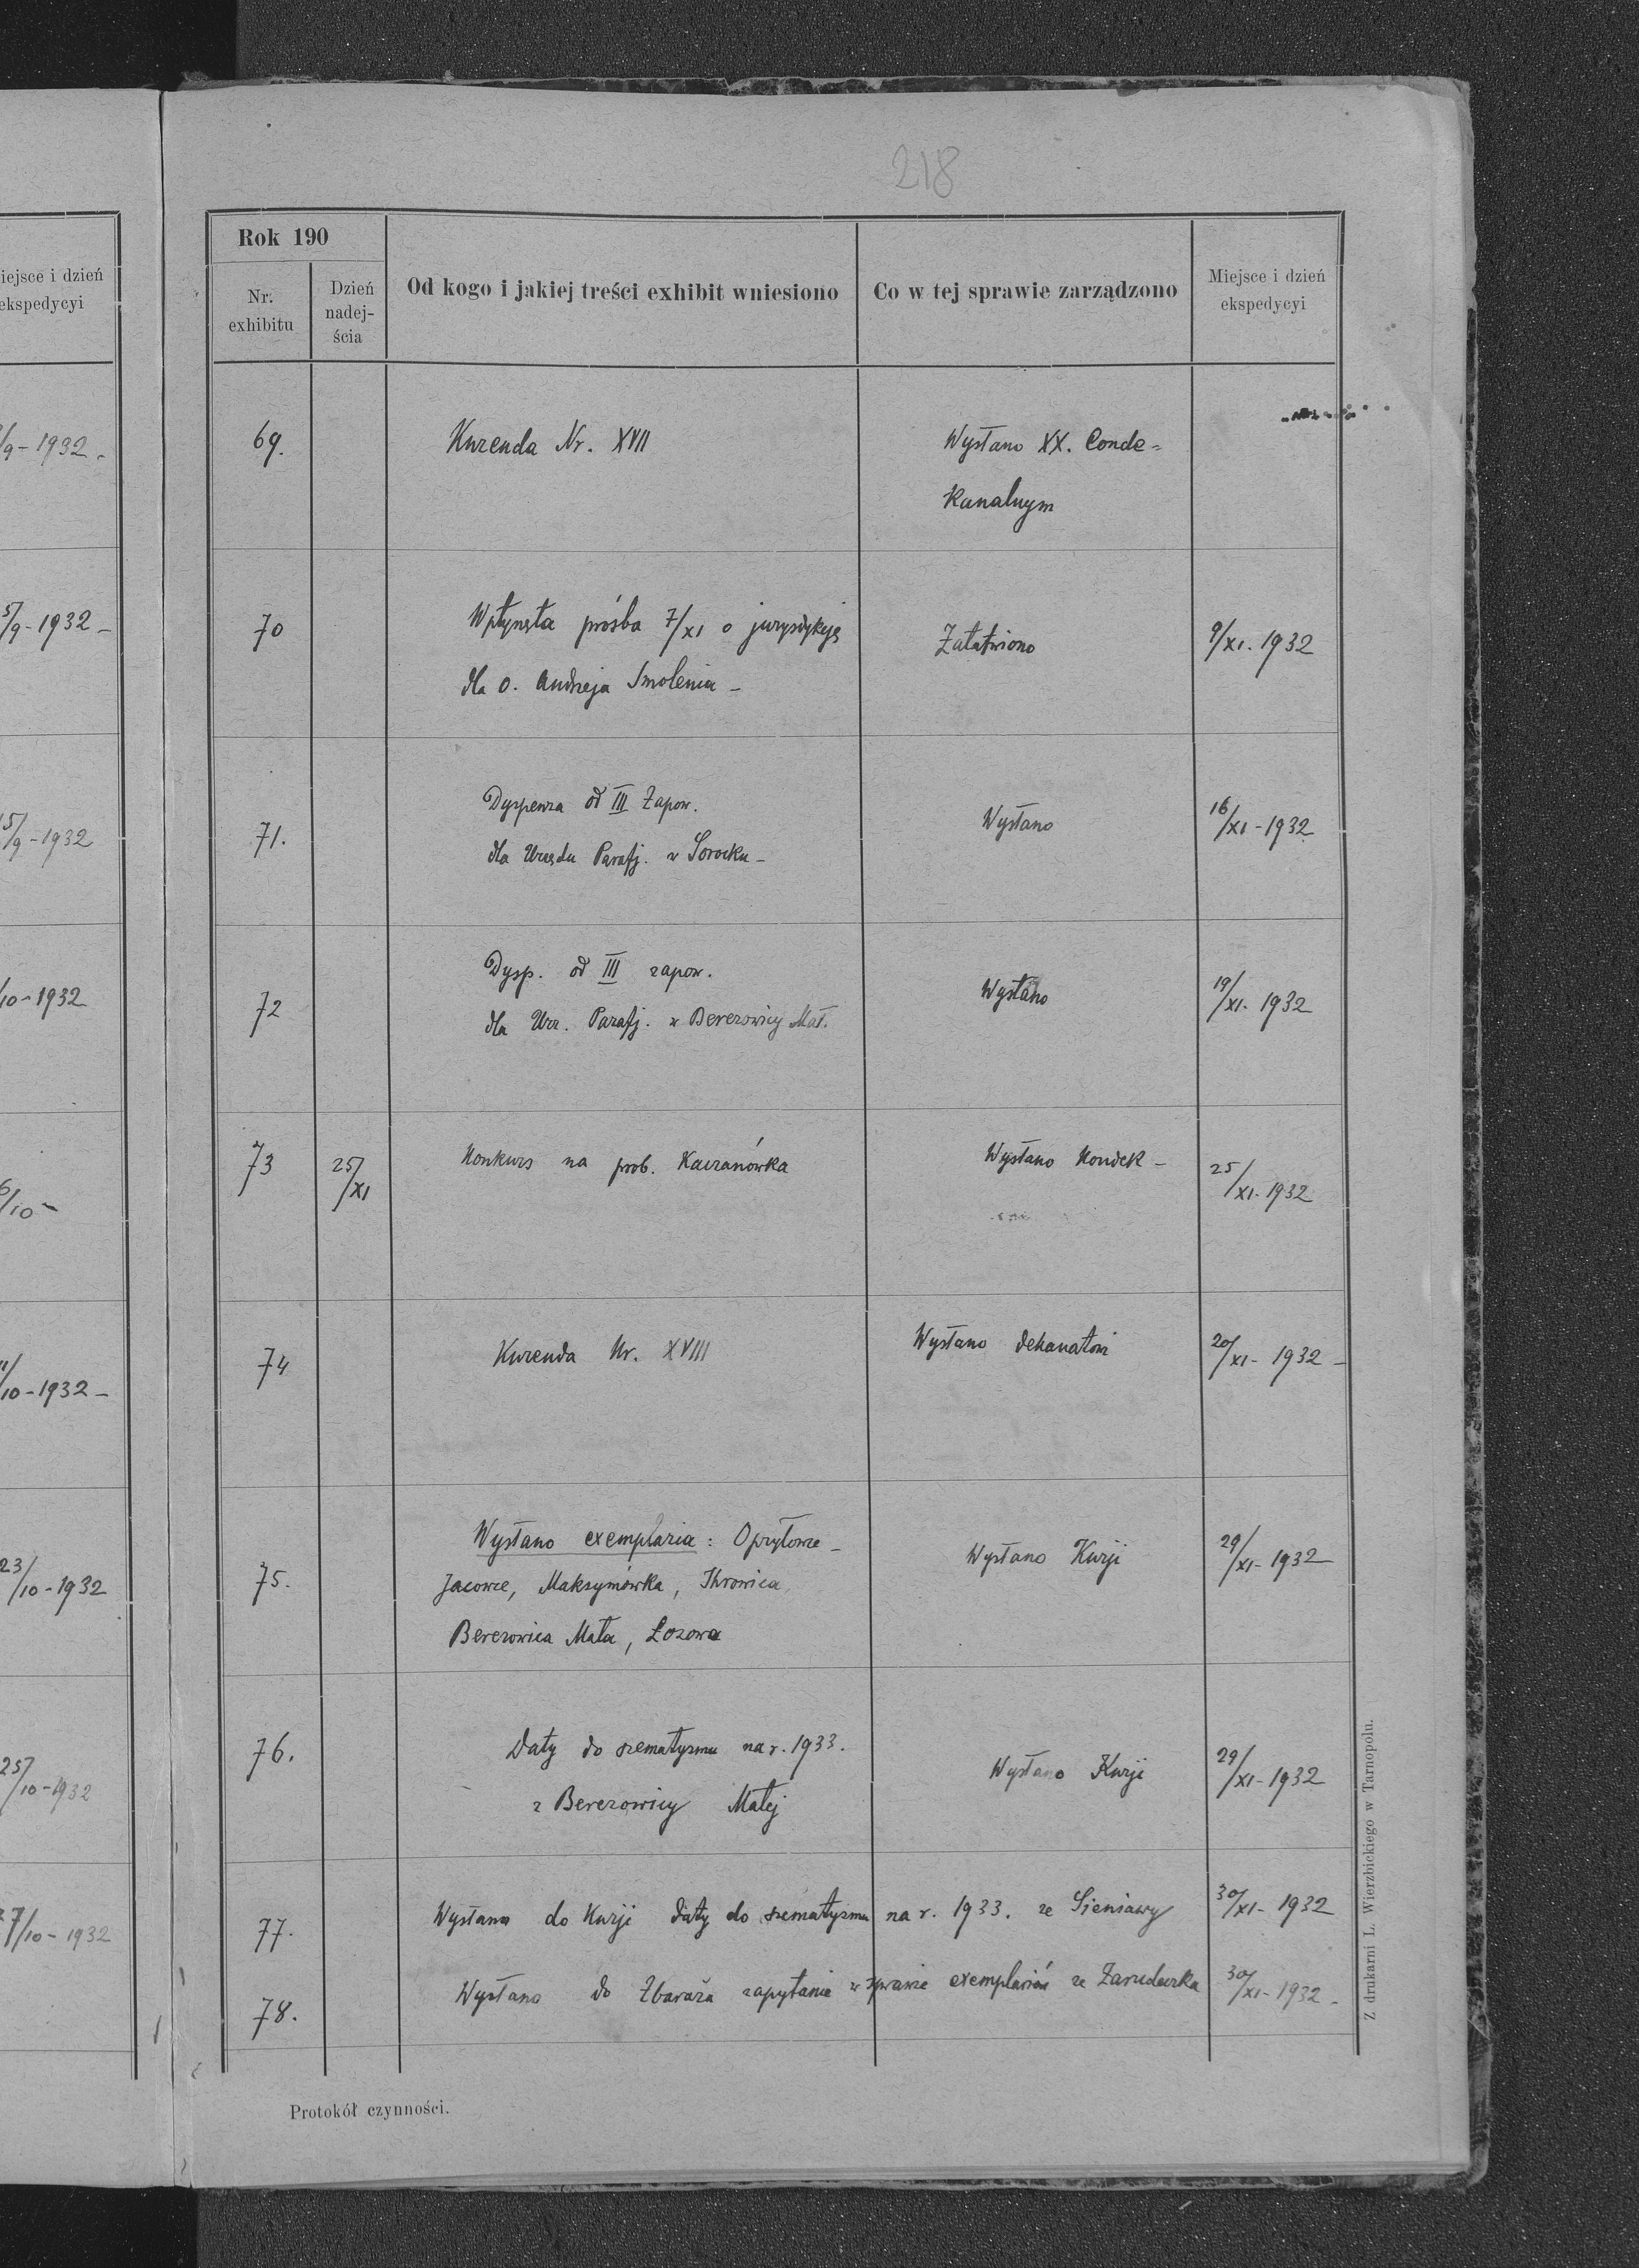 218
iejsce i dzień
ekspedycyi
/9-1932.
5/9-1932-
15/9-1932
/10-1932
6/10-
11/10-1932-
23/10-1932
25/10-1932
27/10-1932
Rok 190
Nr. exhibitu
Dzień nadej-ścia
Od kogo i jakiej treści exhibit wniesiono
Co w tej sprawie zarządzono
Miejsce i dzień ekspedycyi
69. Kurenda Nr. XVII Wysłano XX. Conde=
kanalnym
70 Wpłynęła prośba 7/XI o jurysdykcję Załatwiono 9/XI.1932
dla O. Andrzeja Smolenia -
71. Dyspenza od III Zapow. Wysłano 16/XI-1932
dla Urzędu Parafj. w Sorocku-
72 Dysp. od III zapow. Wysłano 19/XI-1932
dla Urz. Parafj. w Berezowicy Mał.
73 25/XI Konkurs na prob. Kaczanówka Wysłano Kondek- 25/XI-1932
74 Kurenda Nr. XVIII Wysłano dekanatowi 20/XI-1932-
75. Wysłano exemplaria: Opryłowce- Wysłano Kurji 29/XI-1932
Jacowce, Maksymówka, Ihrowica,
Berezowica Mała, Łozowa
76. Daty do szematyzmu na r. 1933. Wysłano Kurji 29/XI-1932
z Berezowicy Małej
77. Wysłano do Kurji daty do szematyzmu na r. 1933. ze Sieniawy 30/XI-1932
78. Wysłano do Zbaraża zapytanie w sprawie exemplarów ze Zarudeczka 30/XI-1932-
Protokół czynności.
Z drukarni L. Wierzbickiego w Tarnopolu.